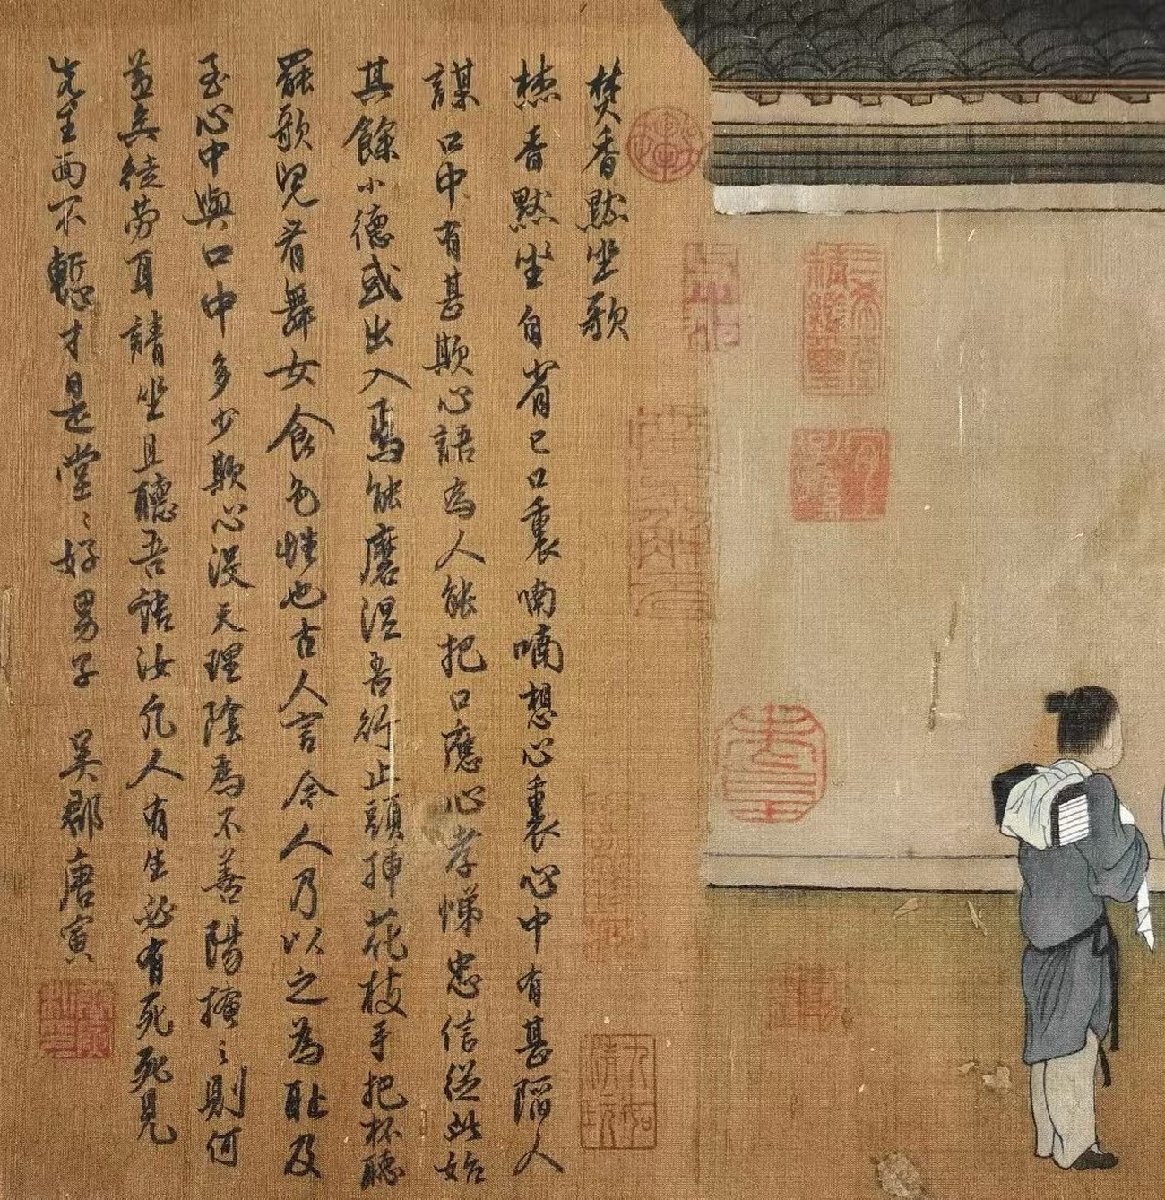 焚香默坐歌
焚香默坐自省己口裏喃喃想心裏心中有甚陷人
謀口中有甚欺心語為人能把口應心孝悌忠信從此始
其餘小德或出入焉能磨涅吾行止頭揷花枝手把杯聽
罷歌兒看舞女食色性也古人言今人乃以之為恥及
至心中與口中多少欺心沒天理陰為不善陽掩〻則何
益矣徒勞耳請坐且聽吾語汝凡人有生必有死死見
先生面不慙才是堂〻好男子 吳郡唐寅
三希堂精鑑璽
宜子孫
九如清玩